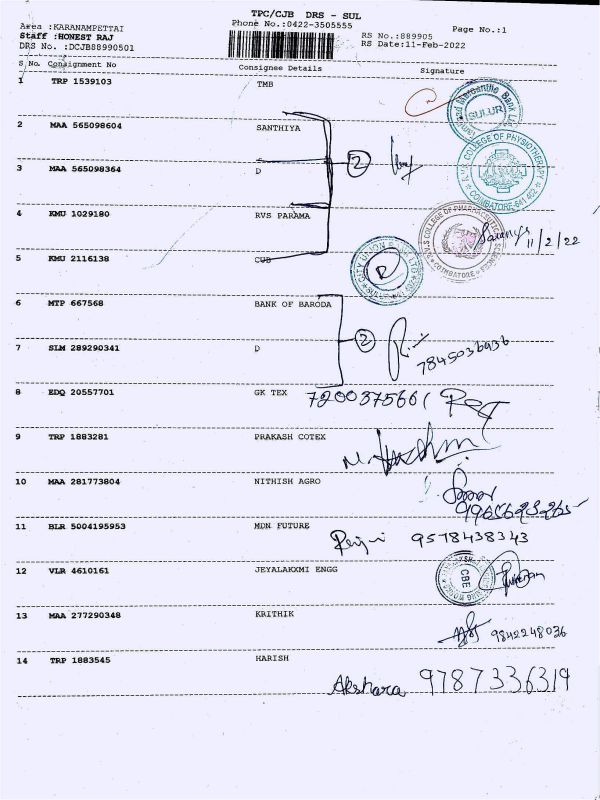 TPC/CJB DRS - SUL
Area :KARANAMPETTAI Phone No.:0422-3505555 Page No.:1
Staff :HONEST RAJ RS No.:889905
DRS No. :DCJB88990501 RS Date:11-Feb-2022
S No. Consignment No Consignee Details Signature
1 TRP 1539103 TMB
SULUR
2 MAA 565098604 SANTHIYA
COLLEGE OF PHYSIOTHERAPY
COIMBATORE-641 402
3 MAA 565098364 D 2
4 KMU 1029180 RVS PARAMA
R.V.S COLLEGE OF PHARMACEUTICAL SCIENCES
COIMBATORE
11/2/22
5 KMU 2116138 CUB
CITY UNION BANK LTD
6 MTP 667568 BANK OF BARODA
2
7 SLM 289290341 D 7845036936
8 EDQ 20557701 GK TEX 7200375661
9 TRP 1883281 PRAKASH COTEX
10 MAA 281773804 NITHISH AGRO
9965623265
11 BLR 5004195953 MDN FUTURE
9578438343
12 VLR 4610161 JEYALAKXMI ENGG
CBE
13 MAA 277290348 KRITHIK
9842248036
14 TRP 1883545 HARISH
Akshara 9787336319